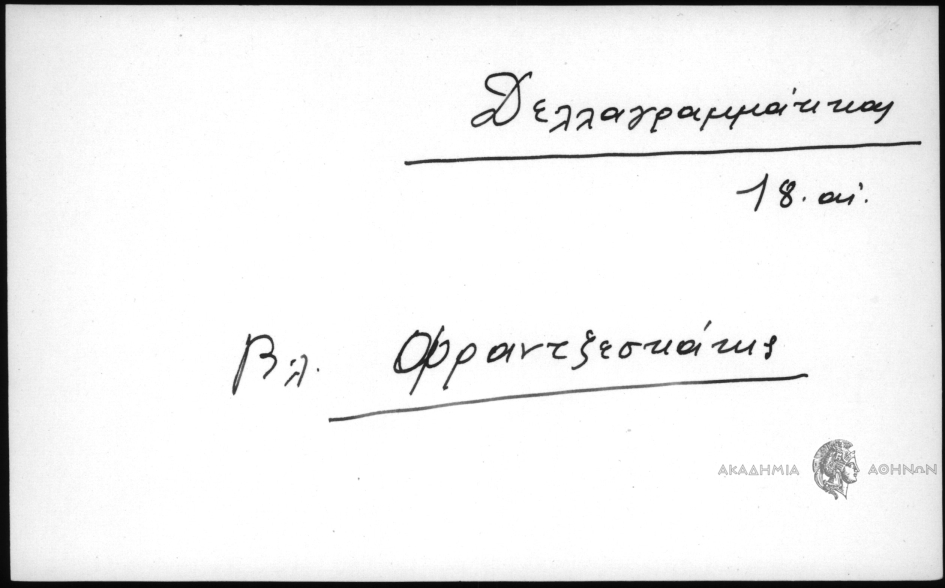 Δελλαγραμμάτικας
18. αἰ.
Βλ. Φραντζεσκάκης
ΑΚΑΔΗΜΙΑ ΑΘΗΝΩΝ